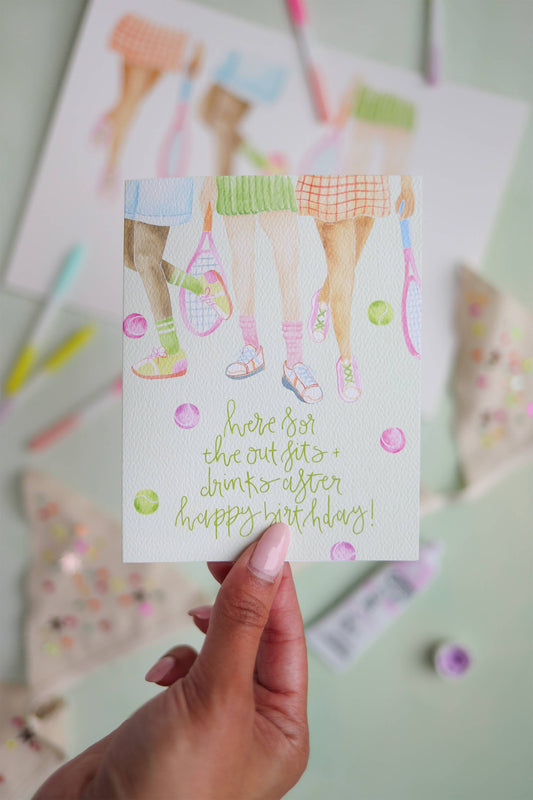 here for
the outfits +
drinks after
happy birthday!